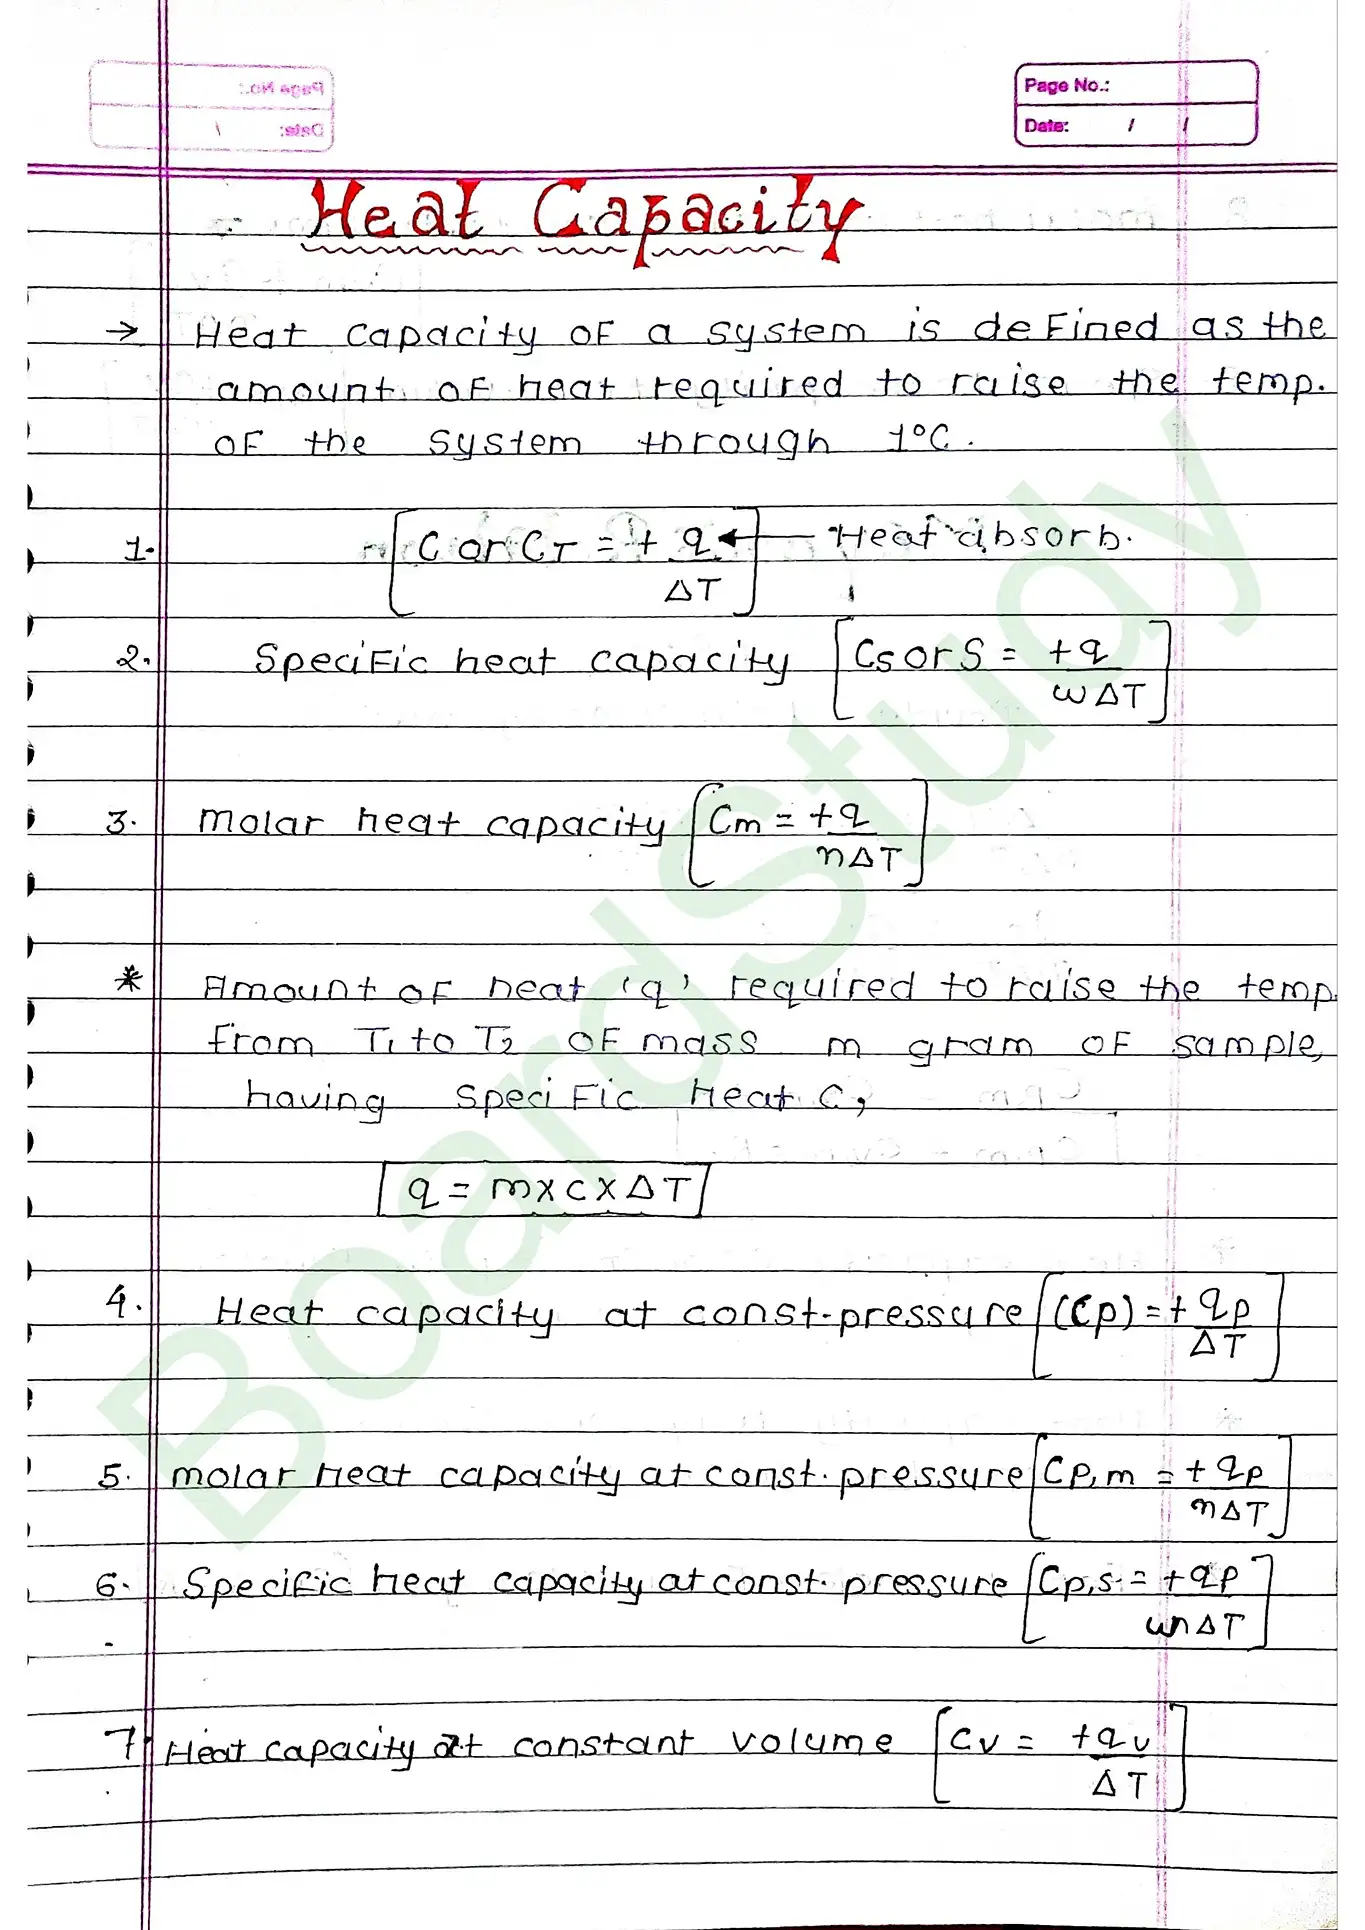 Page No.:
Date: / /
Heat Capacity
→ Heat capacity of a system is defined as the
amount of heat required to raise the temp.
of the system through 1°C.
1. [C or CT = + q ← Heat absorb.
ΔT]
2. Specific heat capacity [Cs or S = +q
wΔT]
3. molar heat capacity [Cm = +q
nΔT]
* Amount of heat 'q' required to raise the temp.
from T1 to T2 of mass m gram of sample,
having specific Heat C,
q = m×c×ΔT
4. Heat capacity at const.pressure [(Cp) = + qp
ΔT]
5. molar heat capacity at const. pressure [Cp,m = + qp
nΔT]
6. Specific heat capacity at const. pressure [Cp,s = +qp
ΔT]
7. Heat capacity at constant volume [Cv = +qv
ΔT]
BoardStudy